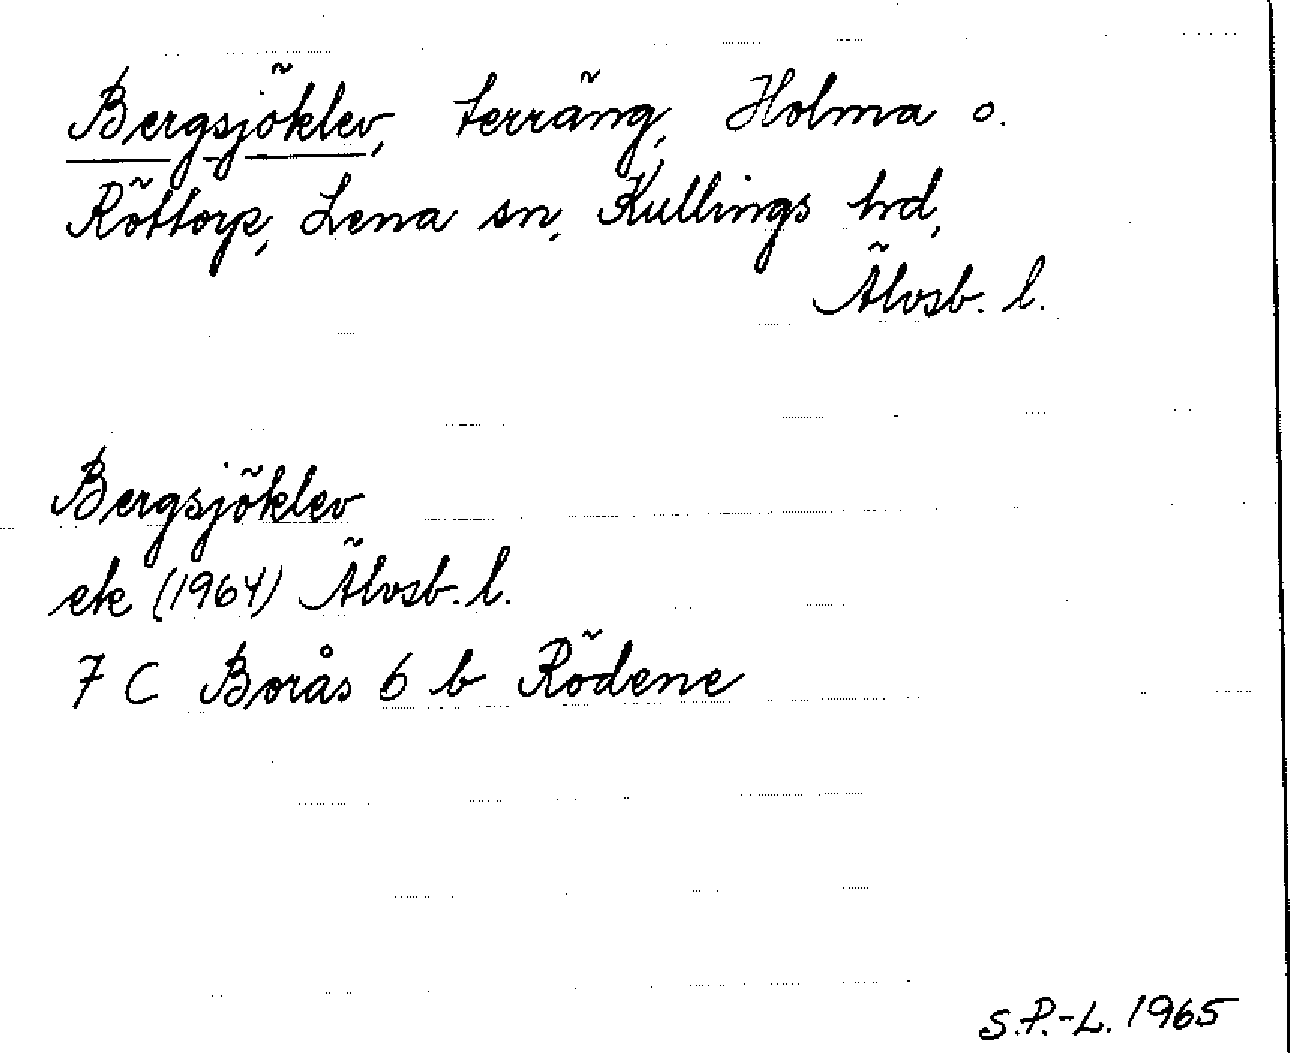 Bergsjöklev, terräng, Holma o.
Röttorp, Lena sn, Kullings hd,
Älvsb. l.
Bergsjöklev
ek (1964) Älvsb. l.
7 C Borås 6 b Rödene
S.P.-L. 1965